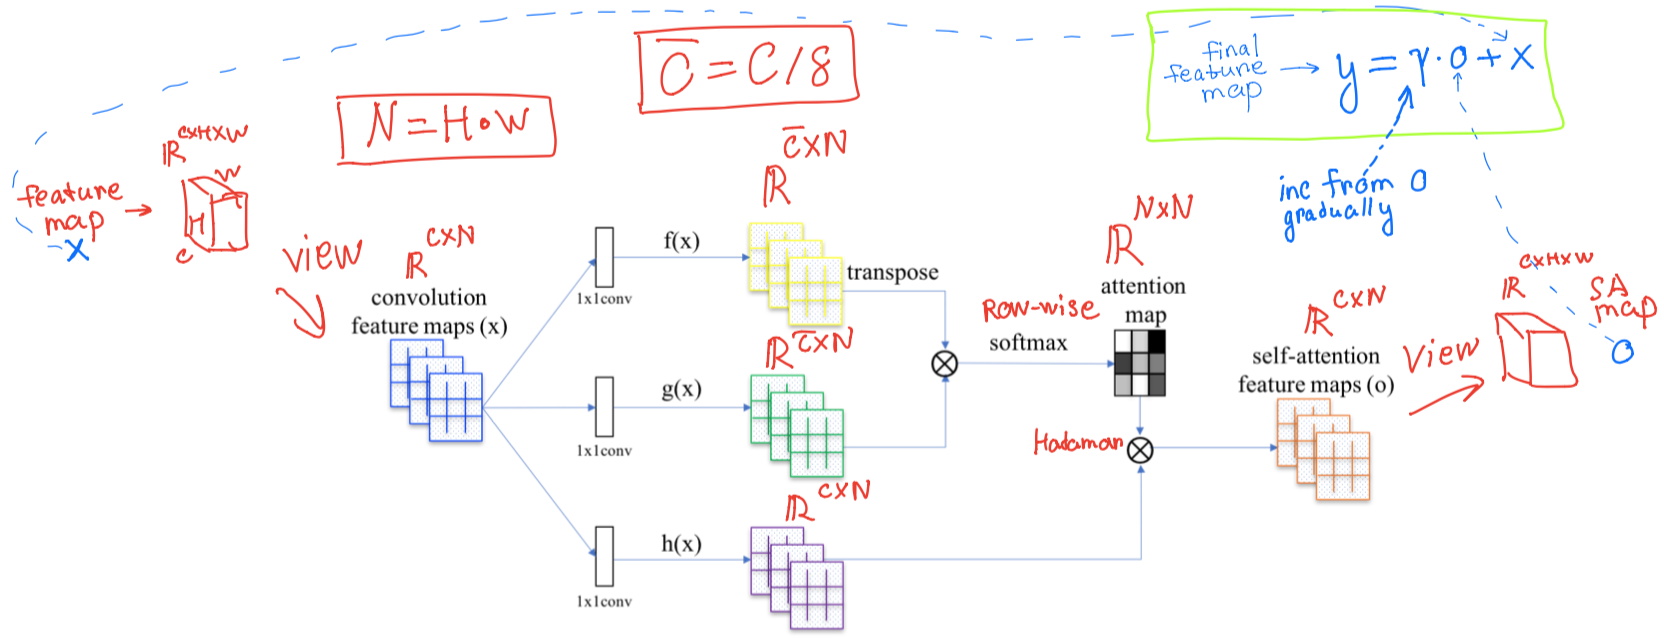 C̅ = C/8
N = H•W
final
feature
map → y = γ·o + x
inc from 0
gradually
ℝ^{C×H×W}
feature
map →
-x
W
H
C
view
ℝ^{C×N}
convolution
feature maps (x)
1x1conv
f(x)
ℝ^{C̅×N}
transpose
1x1conv
g(x)
ℝ^{C̅×N}
1x1conv
h(x)
ℝ^{C×N}
Row-wise
softmax
ℝ^{N×N}
attention
map
Hadaman
ℝ^{C×N}
self-attention
feature maps (o)
View
ℝ^{C×H×W}
SA
map
O